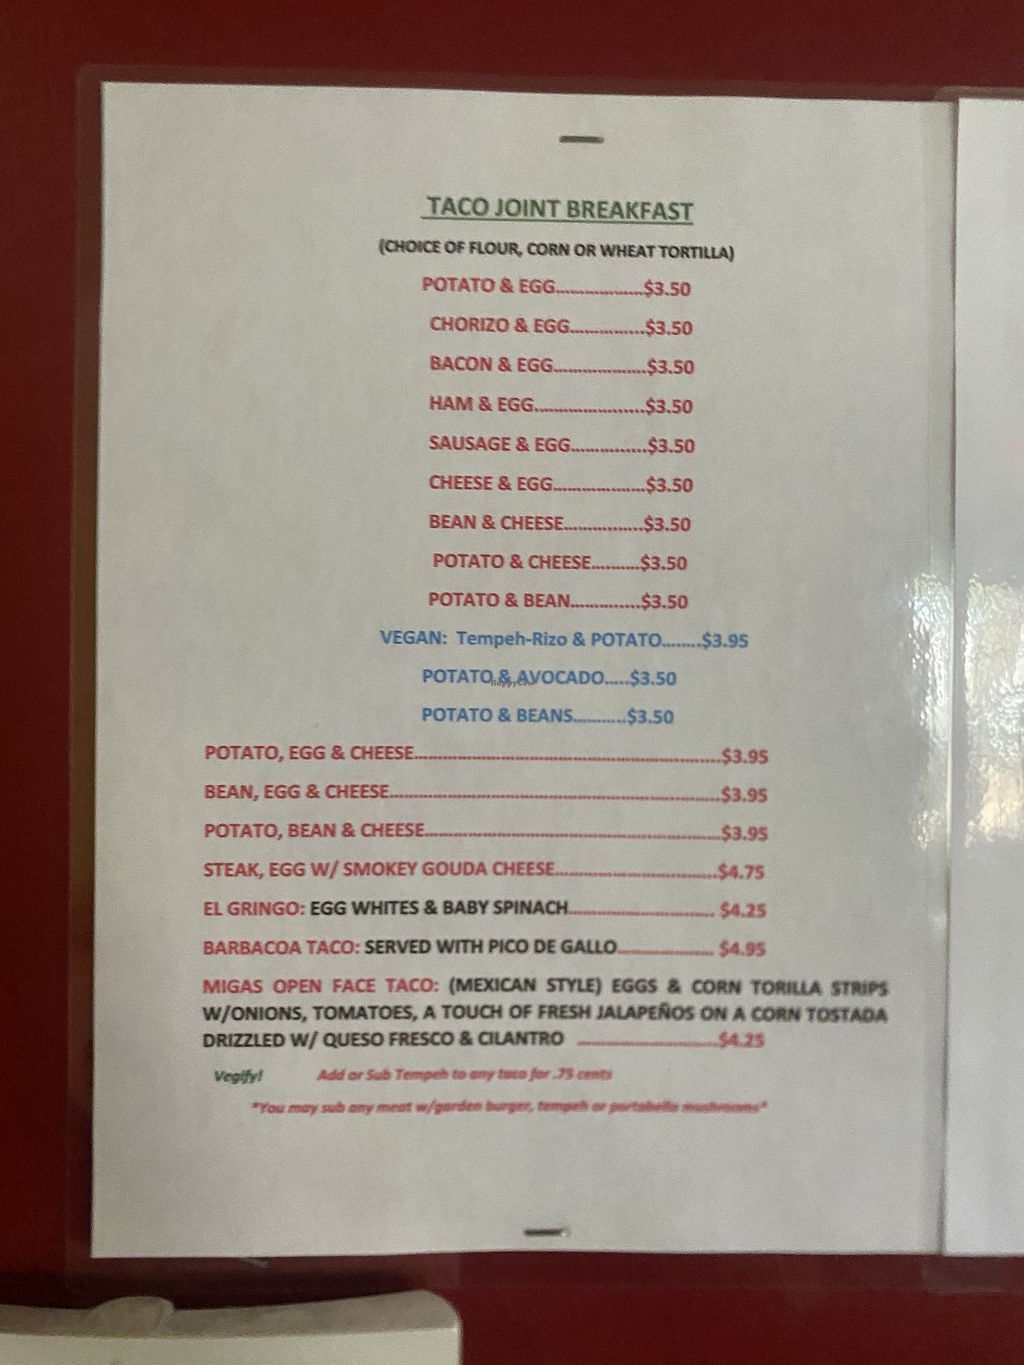 TACO JOINT BREAKFAST
(CHOICE OF FLOUR, CORN OR WHEAT TORTILLA)
POTATO & EGG..................$3.50
CHORIZO & EGG...............$3.50
BACON & EGG...................$3.50
HAM & EGG.......................$3.50
SAUSAGE & EGG................$3.50
CHEESE & EGG...................$3.50
BEAN & CHEESE................$3.50
POTATO & CHEESE..........$3.50
POTATO & BEAN..............$3.50
VEGAN: Tempeh-Rizo & POTATO........$3.95
POTATO & AVOCADO.....$3.50
HappyCow
POTATO & BEANS...........$3.50
POTATO, EGG & CHEESE................................................................$3.95
BEAN, EGG & CHEESE.....................................................................$3.95
POTATO, BEAN & CHEESE..............................................................$3.95
STEAK, EGG W/ SMOKEY GOUDA CHEESE..................................$4.75
EL GRINGO: EGG WHITES & BABY SPINACH.............................. $4.25
BARBACOA TACO: SERVED WITH PICO DE GALLO.................... $4.95
MIGAS OPEN FACE TACO: (MEXICAN STYLE) EGGS & CORN TORILLA STRIPS
W/ONIONS, TOMATOES, A TOUCH OF FRESH JALAPEÑOS ON A CORN TOSTADA
DRIZZLED W/ QUESO FRESCO & CILANTRO .............................$4.25
Vegify! Add or Sub Tempeh to any taco for .75 cents
*You may sub any meat w/garden burger, tempeh or portabella mushrooms*